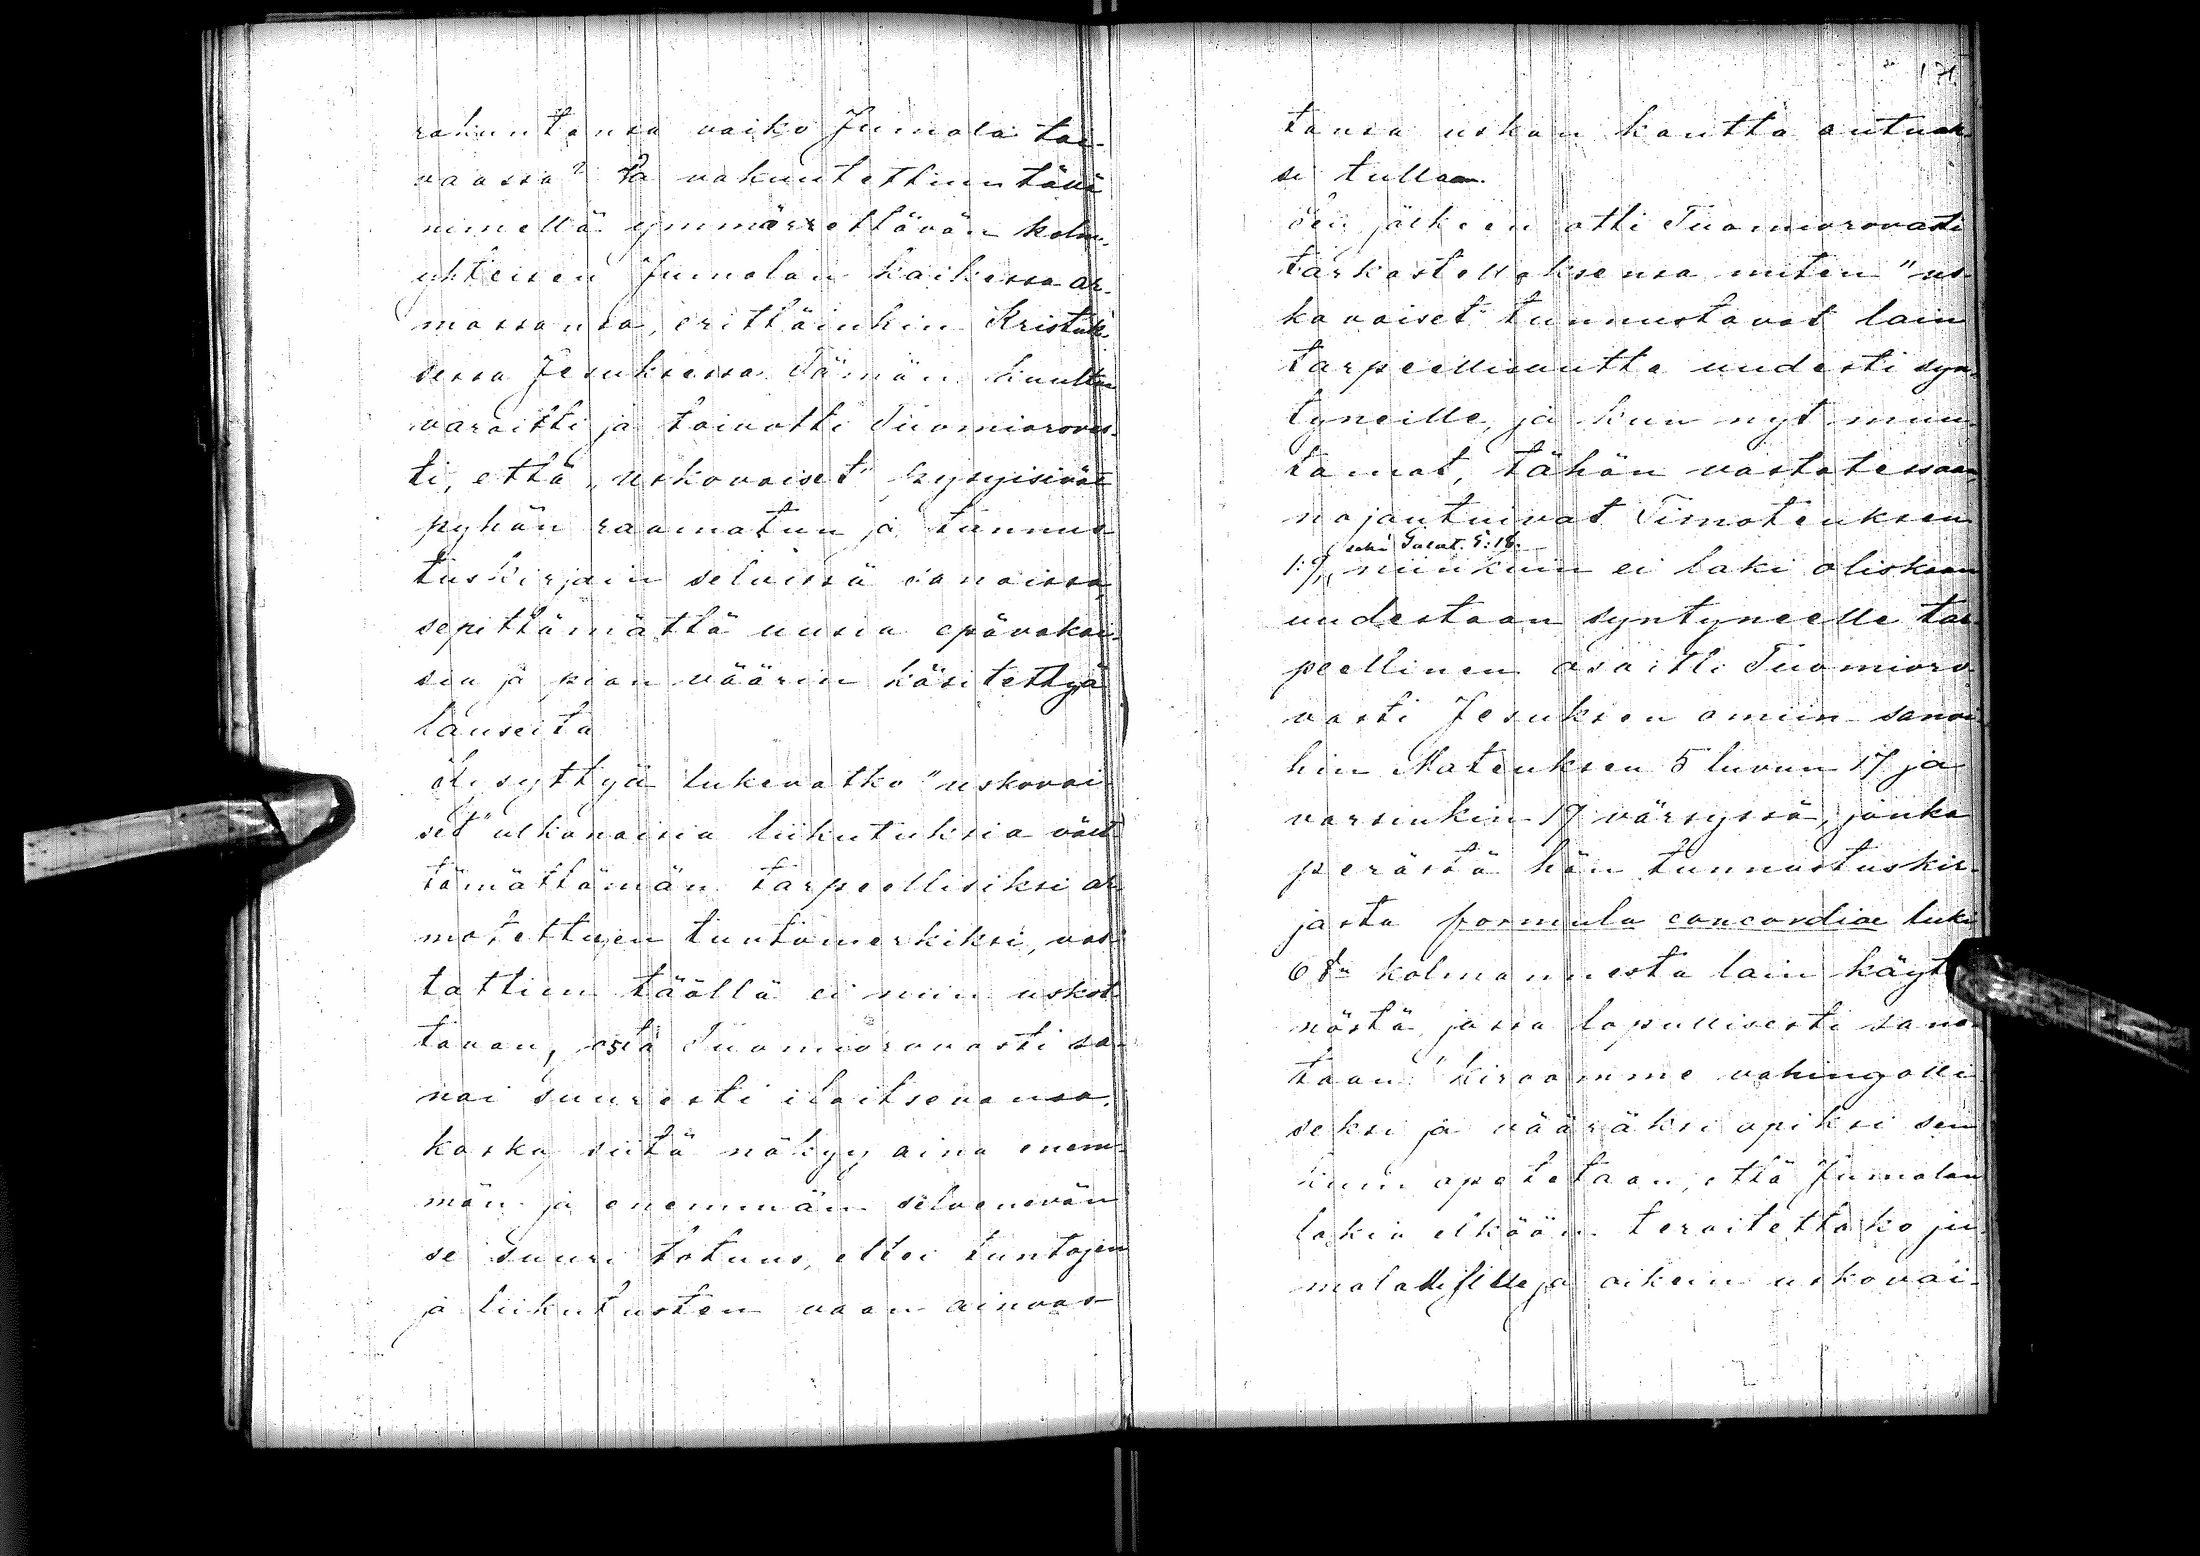 rakuntansa vaiko Jumala tai-
vaassa? Ja vakuutettiin tällä
nimellä ymmärrettävän kolmi-
yhteisen Jumalan kaikessa ar-
massansa, erittäinkin Kristuk-
sessa Jesuksessa. Tämän kuultua
varoitti ja toivotti Tuomiorovas-
ti, että "uskovaiset" pysyisivät
pyhän raamatun ja tunnus-
tuskirjain selvissä sanoissa,
sepittämättä uusia epävakai-
sia ja pian väärin käsitettyjä
lauseita
Kysyttyä lukevatko "uskovai-
set" ulkonaisia liikutuksia vält-
tämättämän tarpeellisiksi ar-
motettujen tuntomerkiksi, vas-
tattiin täällä ei niin uskot-
tavan, josta Tuomiorovasti sa-
noi suuresti iloitsevansa,
koska siitä näkyy aina enem-
män ja enemmän selvenevän
se suuri totuus, ettei tuntojen
ja liikutusten vaan ainoas-
171
tansa uskon kautta autuak-
si tullaan.
Sen jälkeen otti Tuomiorovasti
tarkastellaksensa miten "us-
kovaiset" tunnustavat lain
tarpeellisuutta uudesti syn-
tyneille, ja kun nyt muu-
tamat, tähän vastatessaan,
nojautuivat Timoteuksen
sekä Galat. 5:18.
1:9, niinkuin ei laki oliskaan
uudestaan syntyneelle tar-
peellinen osoitti Tuomioro-
vasti Jesuksen omiin sanoi-
hin Mateuksen 5 luvun 17 ja
varsinkin 19 värsyssä, jonka
perästä hän tunnustuskir-
jasta formula concordiae luki
6 kolmannesta lain käytän-
nöstä, jossa lopullisesti sano-
taan "kiroamme vahingolli-
seksi ja vääräksi opiksi sen
kuin opetetaan, että Jumalan
lakia elköön teroitettako ju-
malallisille ja oikein uskovai-